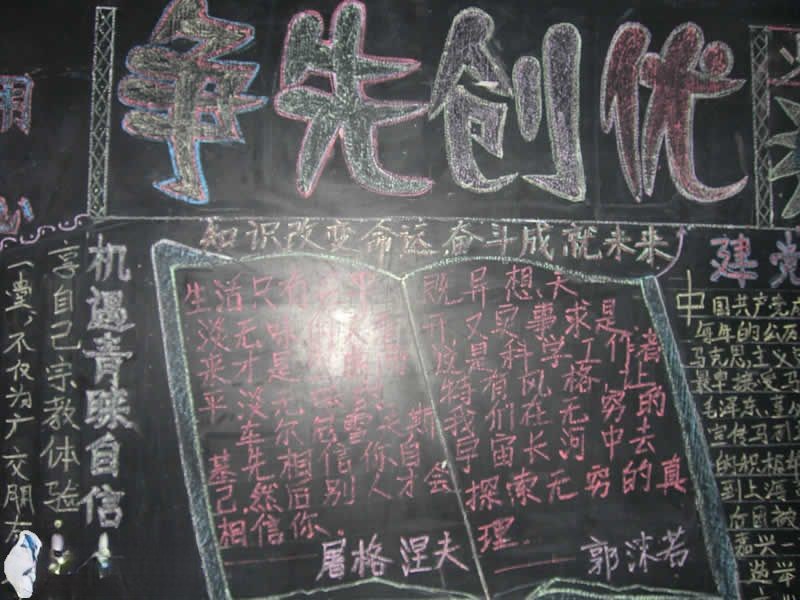 争先创优
知识改变命运 奋斗成就未来
机遇青睐自信
享自己宗教体验
一堂,不仅为广交朋友
生活只有在平
淡无味的
来才是
平淡无
车尔尼雪夫斯
基 先相信你自
己,然后别人才会
相信你.
屠格涅夫
既异想天
开,又实事求是
这是科学工作者
特有的风格
我们在无穷的
宇宙长河中去
探索无穷的真
理.
郭沫若
建党
中国共产党成
每年的公历
马克思主义
最早接受马
毛泽东、董
宣传马列
的积极
到上海
嘉兴
选举